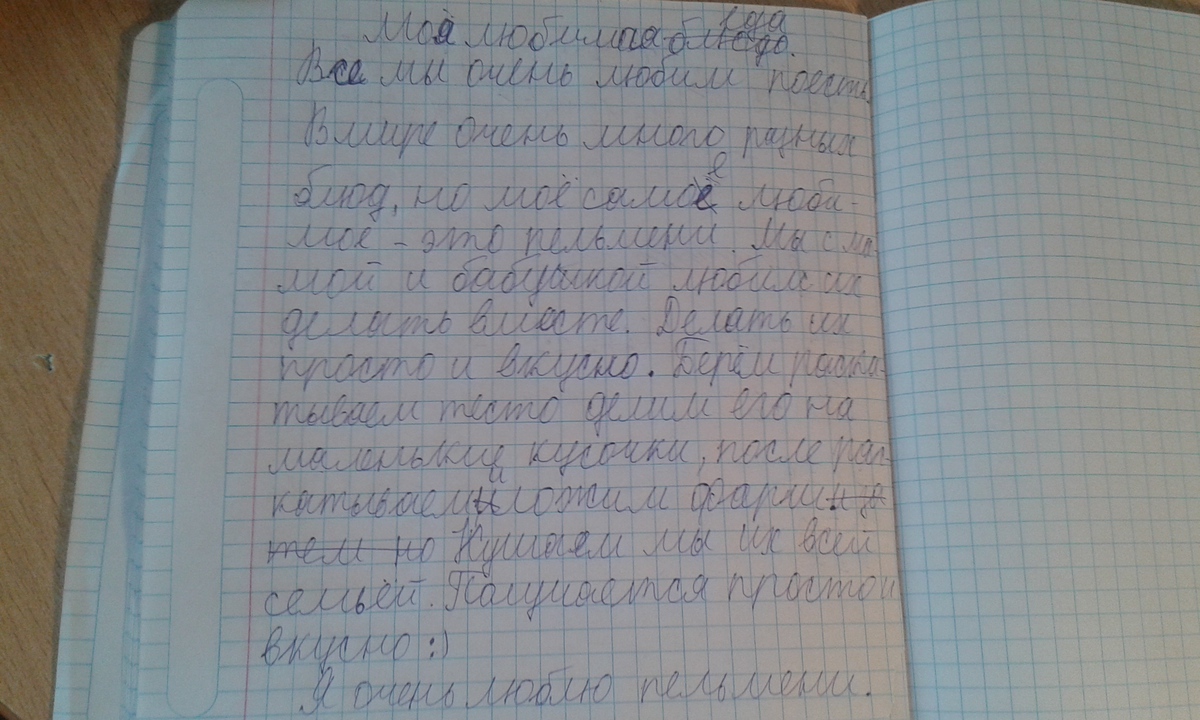 Моя любимая блюдо. еда
Все мы очень любим поесть.
В мире очень много разных
блюд, но моё самое люби-
мое - это пельмени. Мы с ма-
мой и бабушкой любим их
делать вместе. Делать их
просто и вкусно. Берём раска-
тываем тесто делим его на
маленькие кусочки, после рас-
катываем и ложим фарш и за
тем но Кушаем мы их всей
семьёй. Получается просто и
вкусно :)
Я очень люблю пельмени.